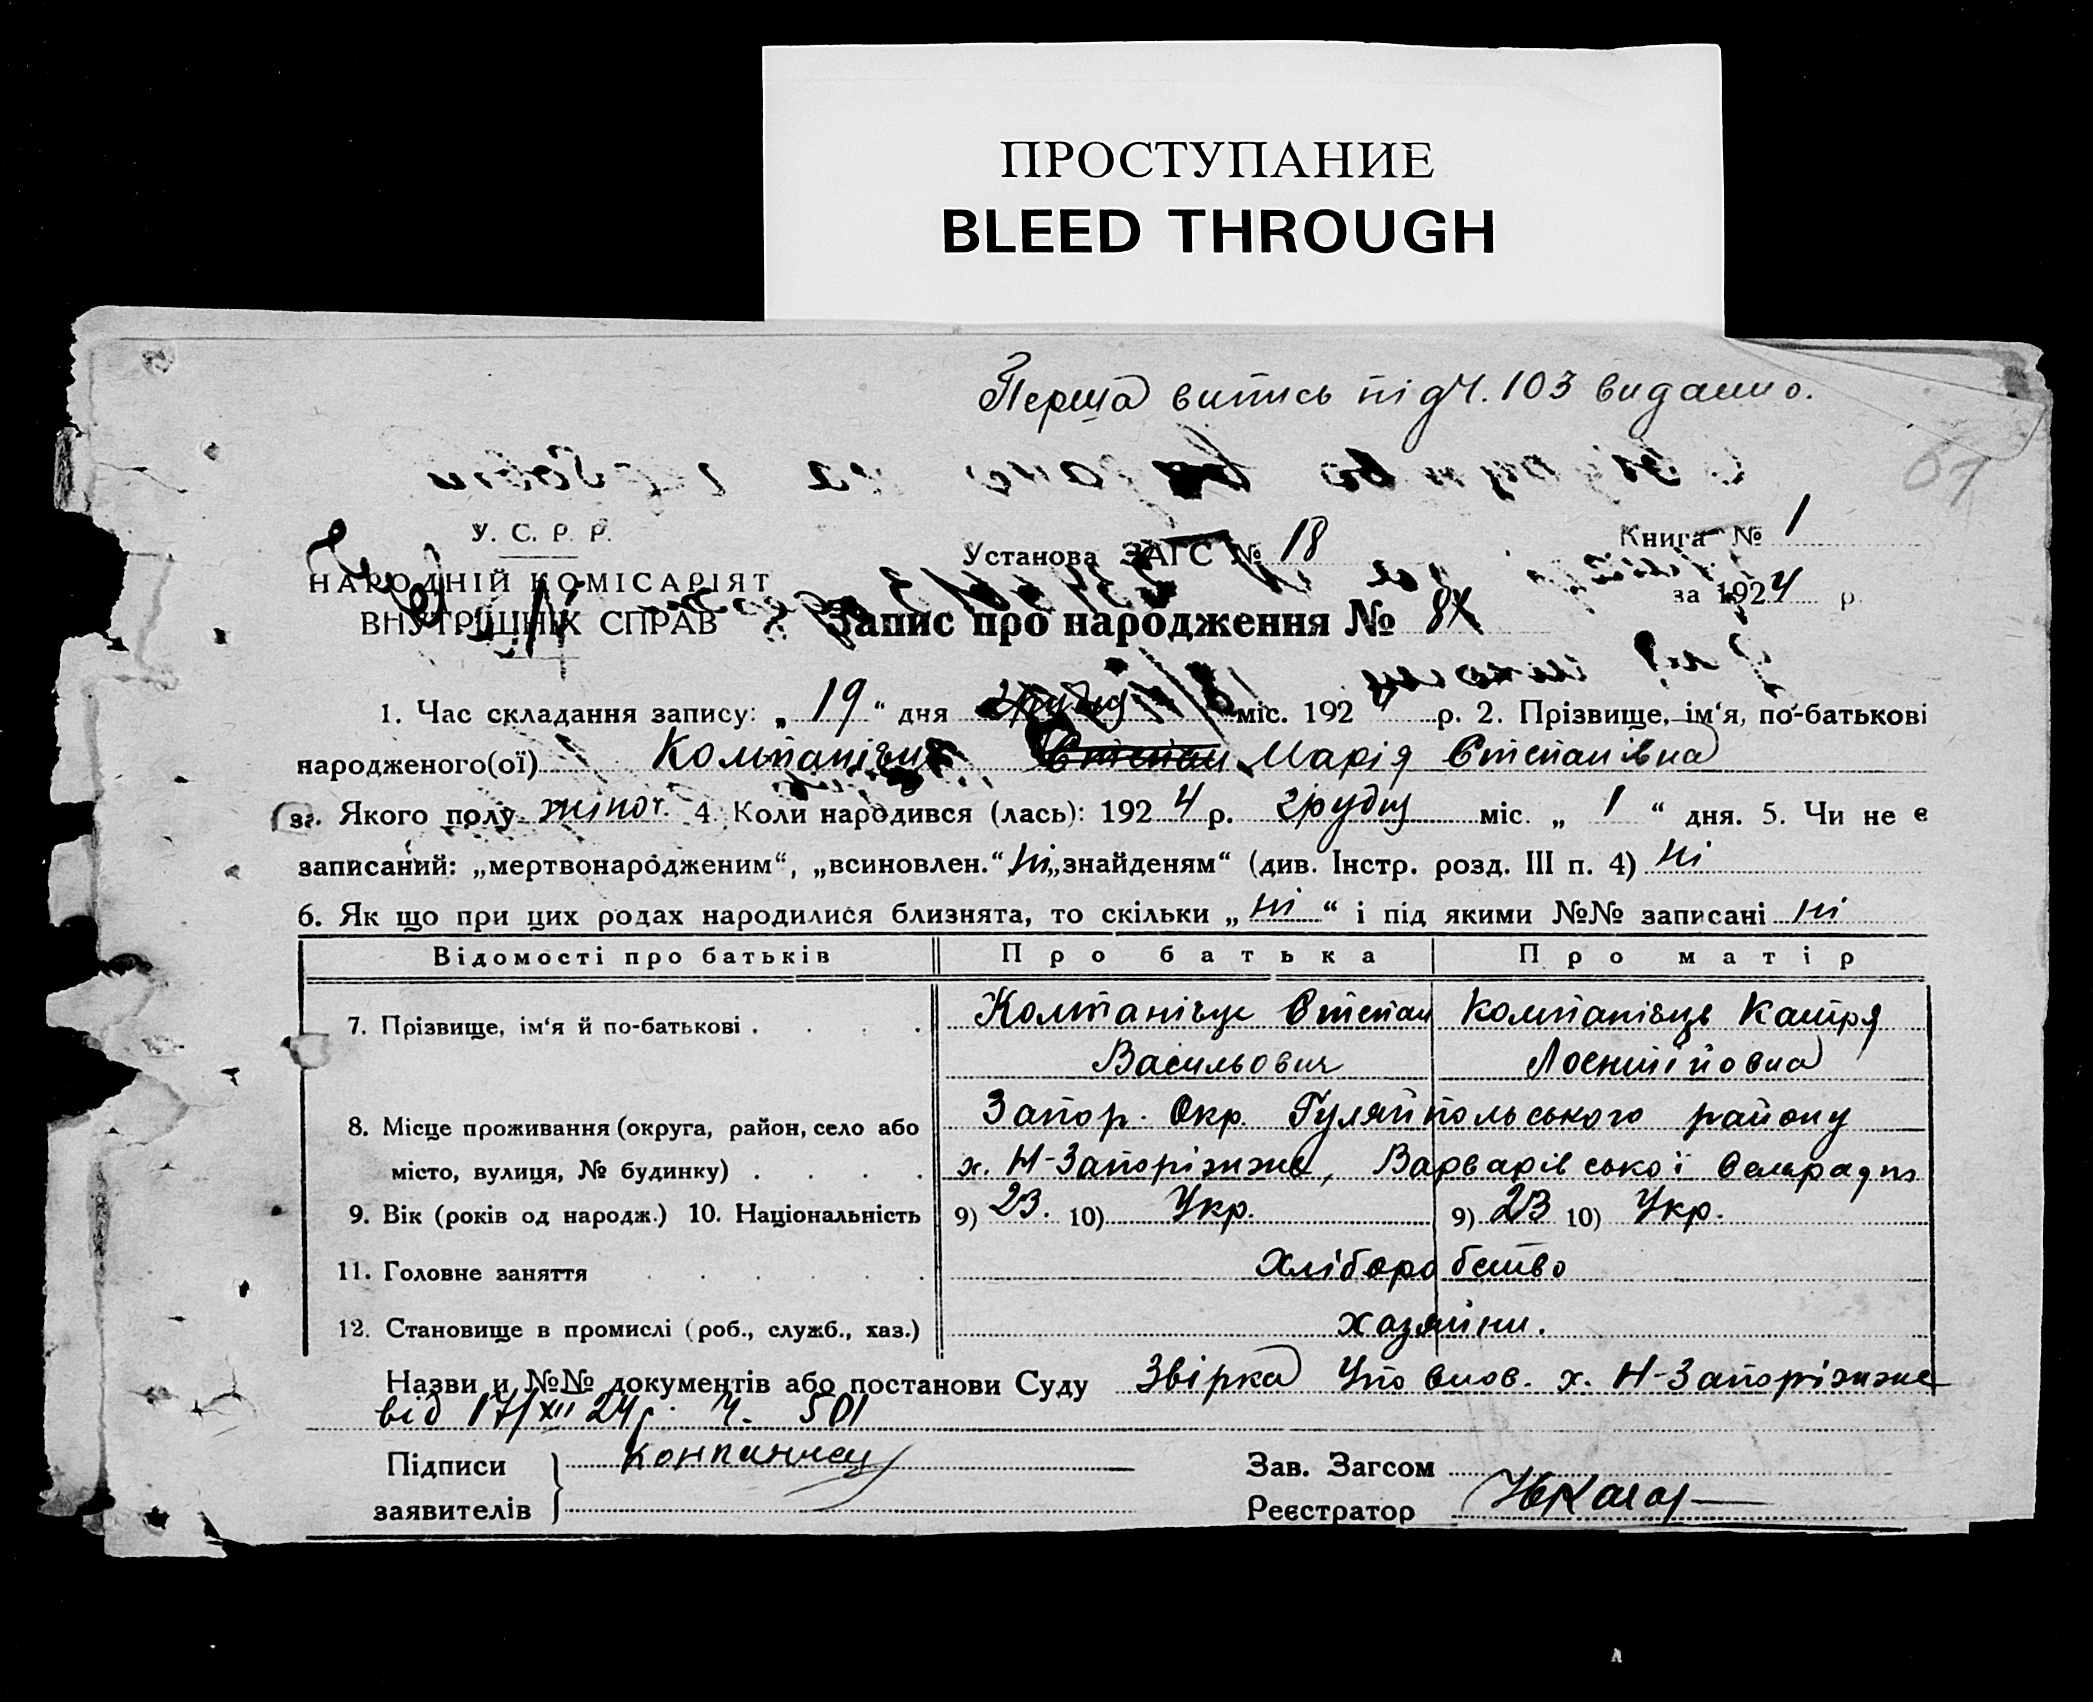 ПРОСТУПАНИЕ
BLEED THROUGH
Перша випись під Ч. 103 видано.
У. С. Р. Р.
НАРОДНІЙ КОМІСАРІЯТ
ВНУТРІШНІХ СПРАВ
Установа ЗАГС № 18
Книга № 1
за 1924 р.
Запис про народження №
1. Час складання запису: „ 19 “ дня грудня міс. 1924 р. 2. Прізвище, ім‘я, по-батькові
народженого(ої) Компанієць Степан Марія Степанівна
3. Якого полу жіноч. 4. Коли народився (лась): 1924 р. грудня міс. „ 1 “ дня. 5. Чи не є
записаний: „мертвонародженим“, „всиновлен.“ Ні „знайденям“ (див. Інстр. розд. III п. 4) Ні
6. Як що при цих родах народилися близнята, то скільки „ Ні “ і під якими №№ записані Ні
Відомості про батьків Про батька Про матір
7. Прізвище, ім‘я й по-батькові . . . . Компанієць Степан Компанієць Катря
Васильович
8. Місце проживання (округа, район, село або Запор. Окр. Гуляйпольського району
місто, вулиця, № будинку) . . . . х. Н-Запоріжжє, Варварівської Сельради
9. Вік (років од народж.) 10. Національність 9) 23. 10) Укр. 9) 23 10) Укр.
11. Головне заняття . . . . . . Хліборобство
12. Становище в промислі (роб., служб., хаз.) хазяйни.
Назви и №№ документів або постанови Суду Звірка х. Н-Запоріжжє
від 17/XII 24 р. Ч. 501
Підписи
заявителів
Зав. Загсом
Реєстратор